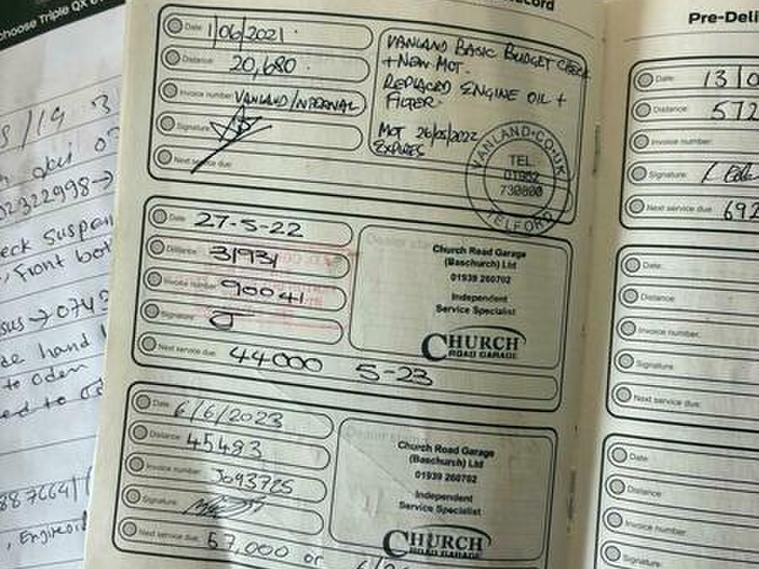 choose Triple QX
Record
Date: 1/06/2021
Distance: 20,680
Invoice number: VANLAND/INTERNAL
Signature:
Next service due:
VANLAND BASIC BUDGET CHECK
+ NEW MOT.
REPLACED ENGINE OIL +
FILTER.
MOT 26/05/2022
EXPIRES
VANLAND·CO·UK
TEL.
01952
730800
TELFORD
Date: 27-5-22
Distance: 31931
Invoice number: 90041
Signature:
Next service due: 44000 5-23
Church Road Garage
(Baschurch) Ltd
01939 260702
Independent
Service Specialist
CHURCH
ROAD GARAGE
Date: 6/6/2023
Distance: 45493
Invoice number: J693725
Signature:
Next service due: 57,000 or
Church Road Garage
(Baschurch) Ltd
01939 260702
Independent
Service Specialist
CHURCH
ROAD GARAGE
Pre-Deli
Date: 13/0
Distance: 572
Invoice number:
Signature:
Next service due: 692
Date:
Distance:
Invoice number:
Signature:
Next service due:
Date:
Distance:
Invoice number:
Signature:
/19
2322998→
eck suspen
, Front bot
→ 0743
de hand
to oden
ed to
887664/
, Engine oil